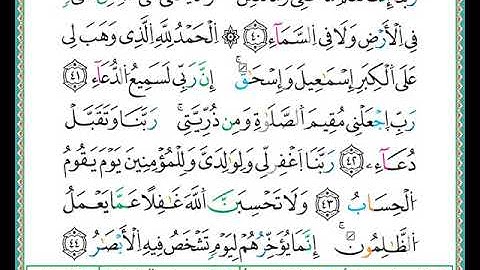 فِي الْأَرْضِ وَلَا فِي السَّمَآءِ ٤٠ ۞ الْحَمْدُ لِلَّهِ الَّذِي وَهَبَ لِي
عَلَى الْكِبَرِ إِسْمَٰعِيلَ وَإِسْحَٰقَ ۚ إِنَّ رَبِّي لَسَمِيعُ الدُّعَآءِ ٤١
رَبِّ اجْعَلْنِي مُقِيمَ الصَّلَوٰةِ وَمِن ذُرِّيَّتِي ۚ رَبَّنَا وَتَقَبَّلْ
دُعَآءِ ٤٢ رَبَّنَا اغْفِرْ لِي وَلِوَٰلِدَيَّ وَلِلْمُؤْمِنِينَ يَوْمَ يَقُومُ
الْحِسَابُ ٤٣ وَلَا تَحْسِبَنَّ اللَّهَ غَٰفِلًا عَمَّا يَعْمَلُ
الظَّٰلِمُونَ ۚ إِنَّمَا يُؤَخِّرُهُمْ لِيَوْمٍ تَشْخَصُ فِيهِ الْأَبْصَٰرُ ٤٤